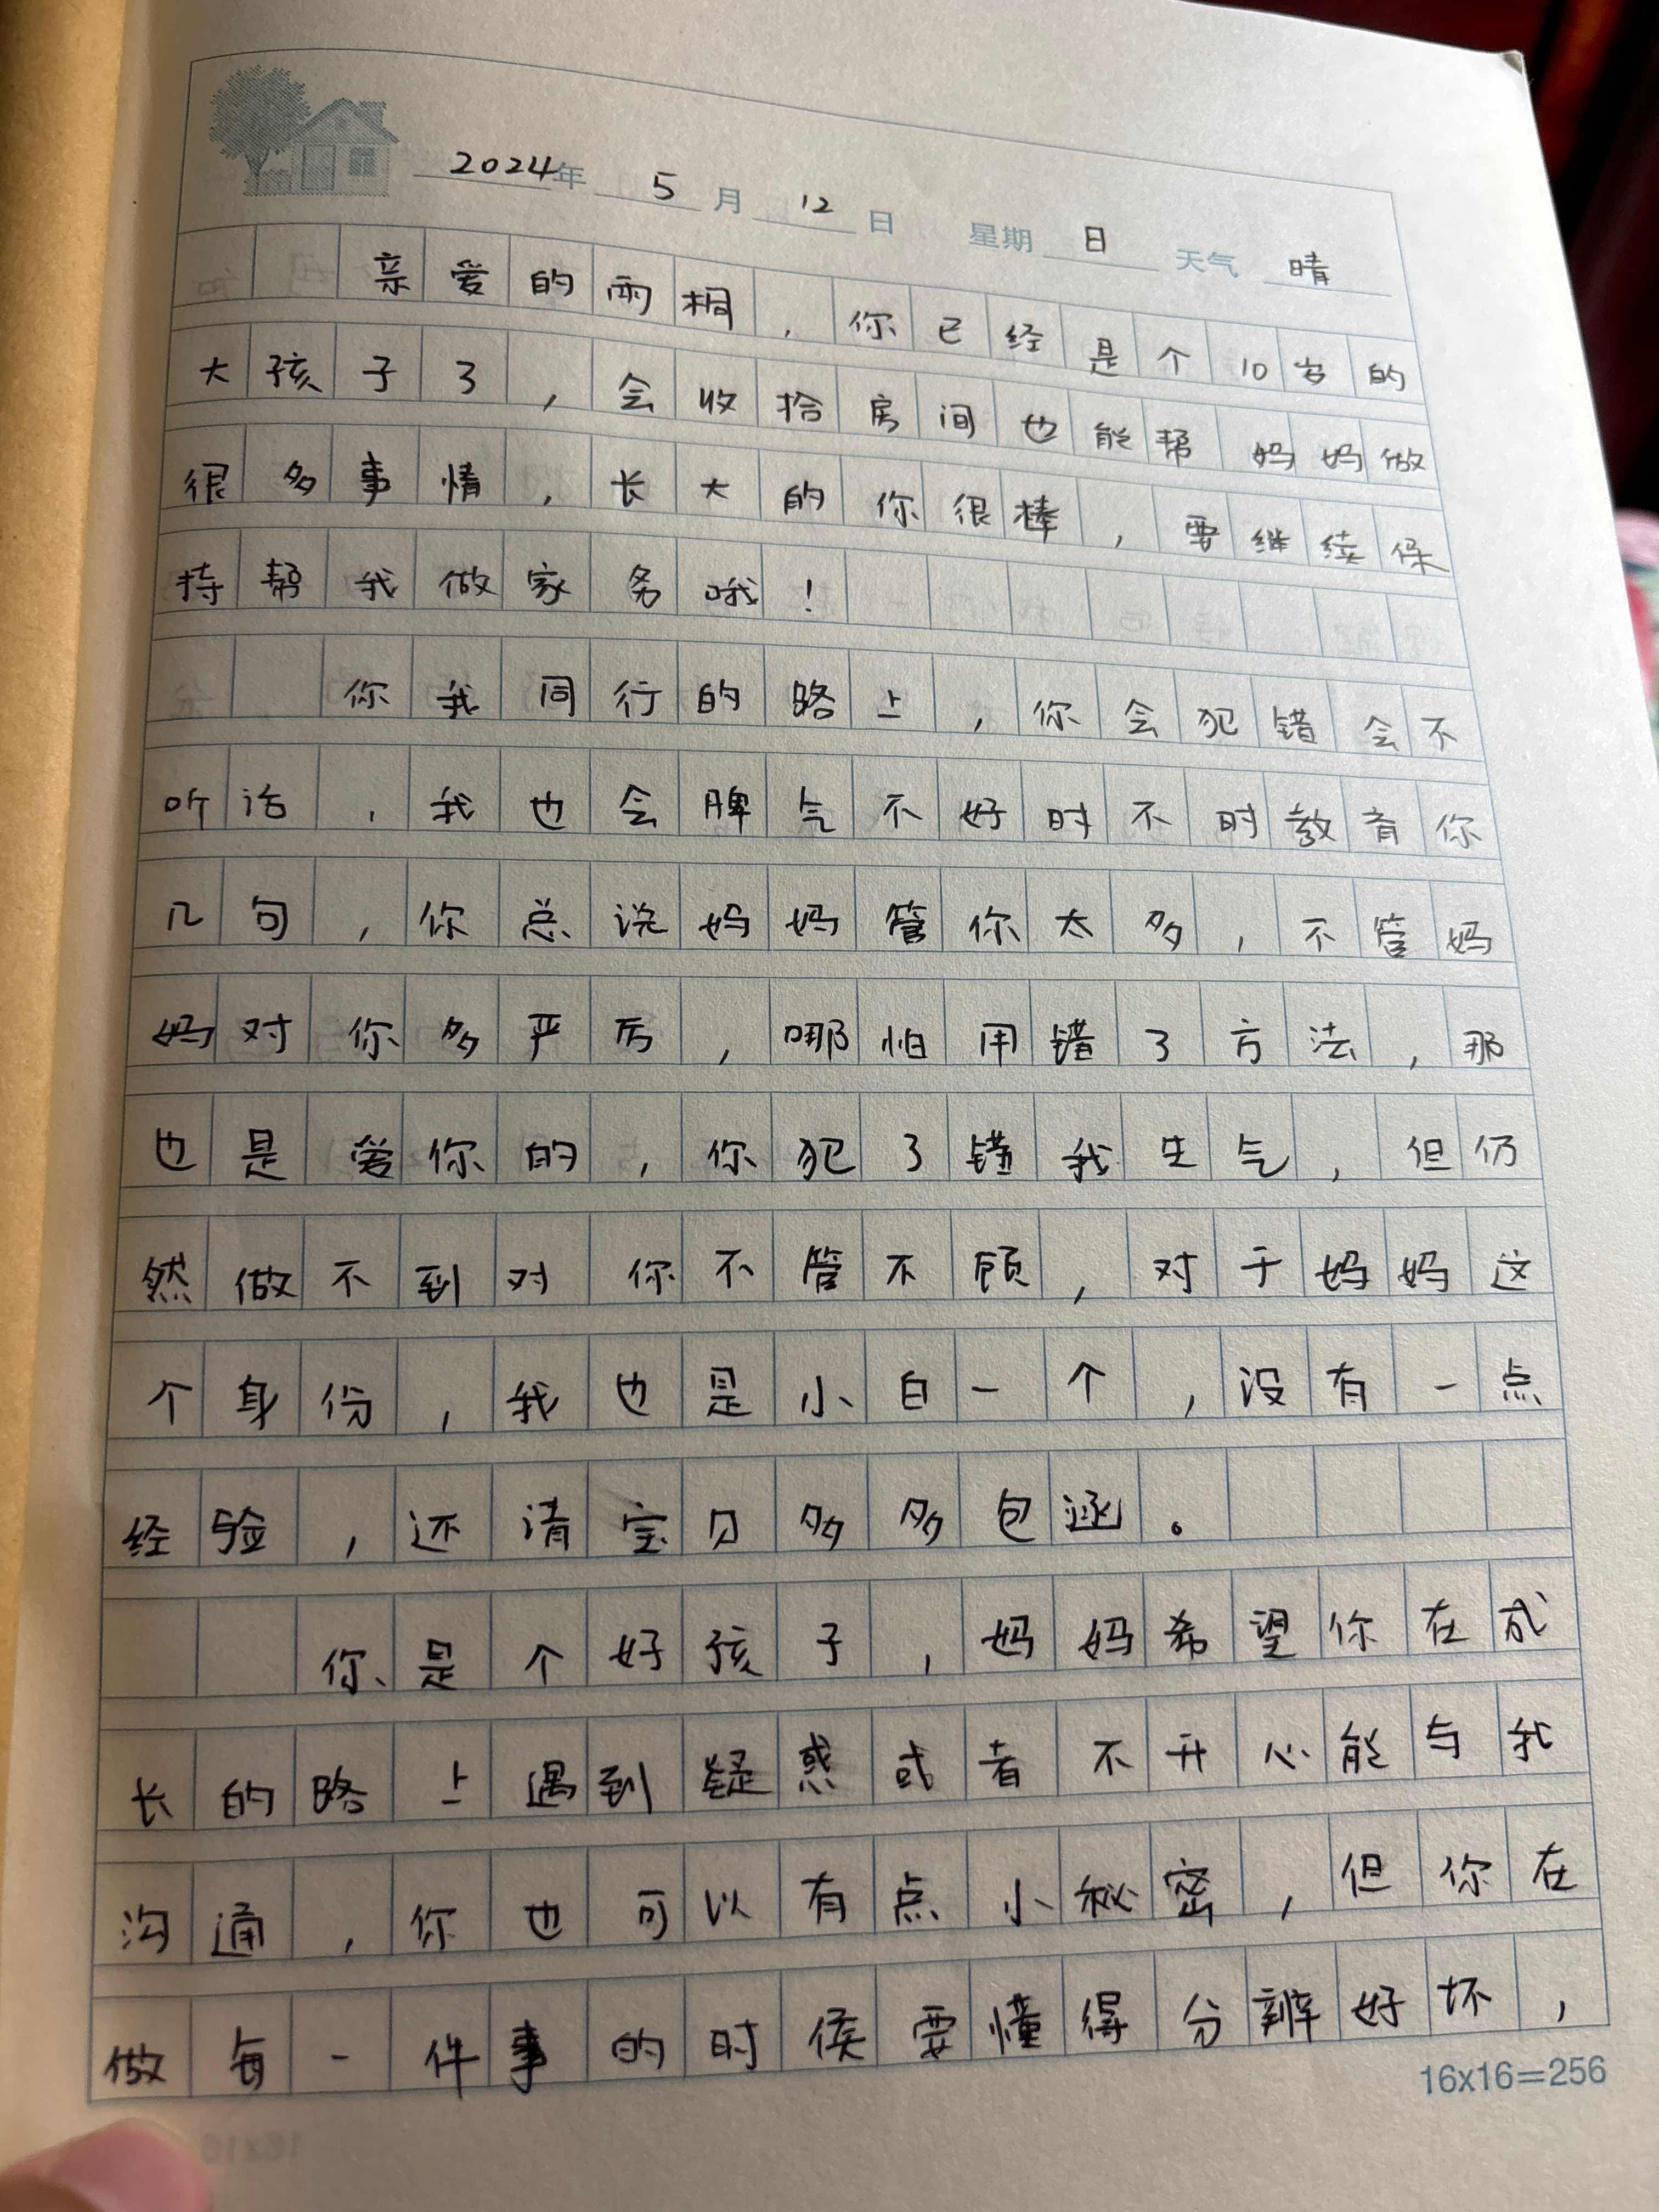 2024年 5月 12日 星期日 天气 晴
亲爱的雨桐，你已经是个10岁的
大孩子了，会收拾房间也能帮妈妈做
很多事情，长大的你很棒，要继续保
持帮我做家务哦！
你我同行的路上，你会犯错会不
听话，我也会脾气不好时不时教育你
几句，你总说妈妈管你太多，不管妈
妈对你多严厉，哪怕用错了方法，那
也是爱你的，你犯了错我生气，但仍
然做不到对你不管不顾，对于妈妈这
个身份，我也是小白一个，没有一点
经验，还请宝贝多多包涵。
你是个好孩子，妈妈希望你在成
长的路上遇到疑惑或者不开心能与我
沟通，你也可以有点小秘密，但你在
做每一件事的时侯要懂得分辨好坏，
16x16=256